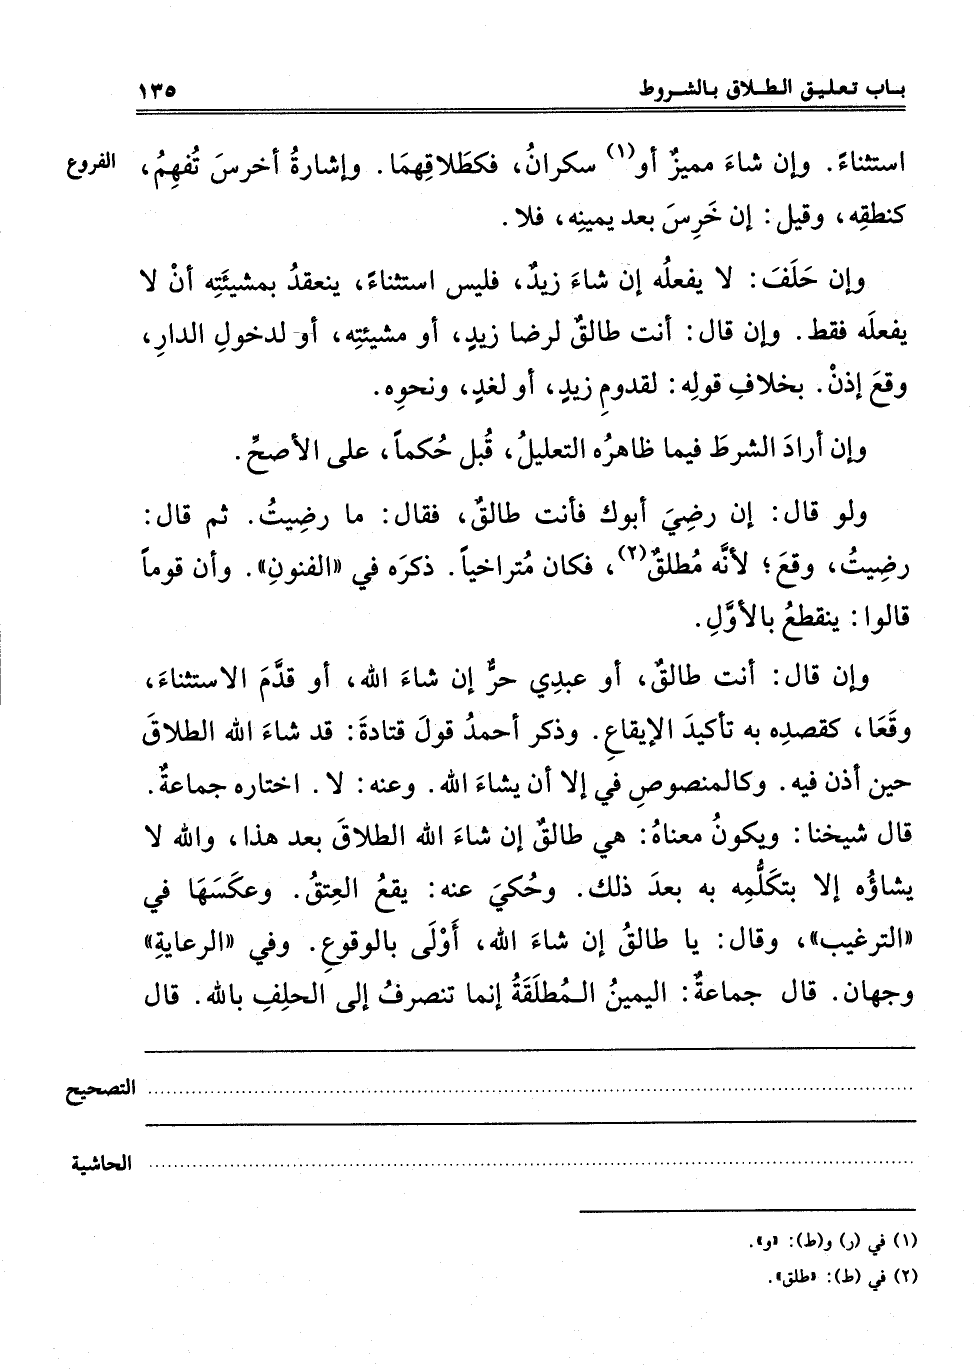 باب تعليق الطلاق بالشروط ١٣٥
استثناءً. وإن شاءَ مميزٌ أو(١) سكرانُ، فكطَلاقِهمَا. وإشارةُ أخرسَ تُفهِمُ، الفروع
كنطقِه، وقيل: إن خَرِسَ بعد يمينِه، فلا.
وإن حَلَفَ: لا يفعلُه إن شاءَ زيدٌ، فليس استثناءً، ينعقدُ بمشيئَتِه أنْ لا
يفعلَه فقط. وإن قال: أنت طالقٌ لرضا زيدٍ، أو مشيئتِه، أو لدخولِ الدارِ،
وقعَ إذنْ. بخلافِ قولِه: لقدومِ زيدٍ، أو لغدٍ، ونحوِه.
وإن أرادَ الشرطَ فيما ظاهرُه التعليلُ، قُبل حُكماً، على الأصحِّ.
ولو قال: إن رضِيَ أبوك فأنت طالقٌ، فقال: ما رضِيتُ. ثم قال:
رضِيتُ، وقعَ؛ لأنَّه مُطلقٌ(٢)، فكان مُتراخياً. ذكرَه في «الفنونِ». وأن قوماً
قالوا: ينقطعُ بالأوَّلِ.
وإن قال: أنت طالقٌ، أو عبدِي حرٌّ إن شاءَ الله، أو قدَّمَ الاستثناءَ،
وقَعَا، كقصدِه به تأكيدَ الإيقاعِ. وذكر أحمدُ قولَ قتادةَ: قد شاءَ الله الطلاقَ
حين أذن فيه. وكالمنصوصِ في إلا أن يشاءَ الله. وعنه: لا. اختاره جماعةٌ.
قال شيخنا: ويكونُ معناهُ: هي طالقٌ إن شاءَ الله الطلاقَ بعد هذا، والله لا
يشاؤُه إلا بتكَلُّمِه به بعدَ ذلك. وحُكيَ عنه: يقعُ العِتقُ. وعكَسَهَا في
«الترغيب»، وقال: يا طالقُ إن شاءَ الله، أَوْلَى بالوقوعِ. وفي «الرعايةِ»
وجهان. قال جماعةٌ: اليمينُ المُطلَقَةُ إنما تنصرفُ إلى الحلِفِ بالله. قال
التصحيح
الحاشية
(١) في (ر) و(ط): «و».
(٢) في (ط): «طلق».